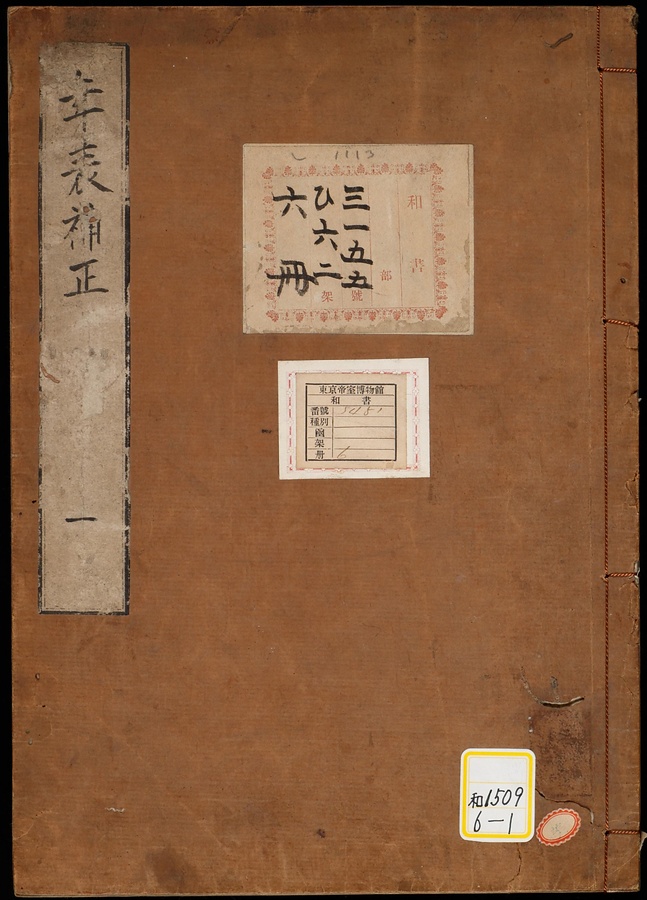 年表補正
一
和書
部
三一五五號
ひ六二架
六冊
東京帝室博物館
和書
番號
種別
函
架
册
和1509
6-1